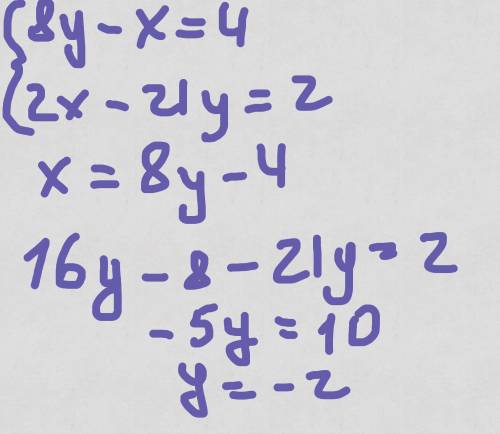 {8y - x = 4
{2x - 21y = 2
x = 8y - 4
16y - 8 - 21y = 2
- 5y = 10
y = - 2